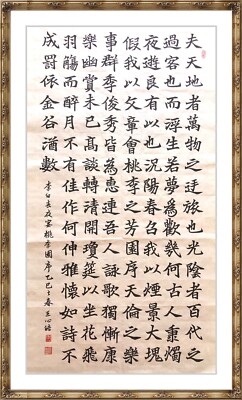 夫天地者萬物之逆旅也光陰者百代之
過客也而浮生若夢為歡幾何古人秉燭
夜遊良有以也況陽春召我以煙景大塊
假我以文章會桃李之芳園序天倫之樂
事群季俊秀皆為惠連吾人詠歌獨慚康
樂幽賞未已髙談轉清開瓊筵以坐花飛
羽觴而醉月不有佳作何伸雅懷如詩不
成罰依金谷酒數
李白春夜宴桃李園序乙巳之春